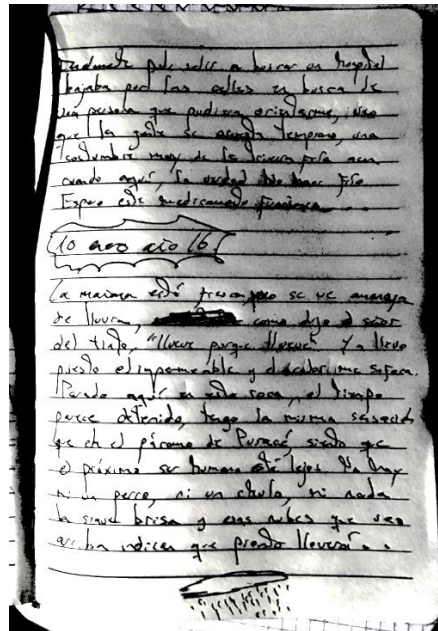 Finalmente pude salir a buscar un hospital
bajaba por las calles en busca de
una persona que pudiera orientarme, veo
que la gente se acuesta temprano, una
costumbre muy de la tierra fría aun
cuando aquí, la verdad no hace frío
Espero este medicamento funcione.
10 ene año 16
La mañana está fresca pero se ve amenaza
de lluvia, como dijo el señor
del tinto, "llueve porque llueve". Ya llevo
puesto el impermeable y el calor me sofoca.
Parado aquí en esta roca, el tiempo
parece detenido, tengo la misma sensación
que en el páramo de Puracé, siento que
el próximo ser humano está lejos. No hay
ni un perro, ni un chulo, ni nada
la suave brisa y esas nubes que veo
arriba indican que pronto lloverá...